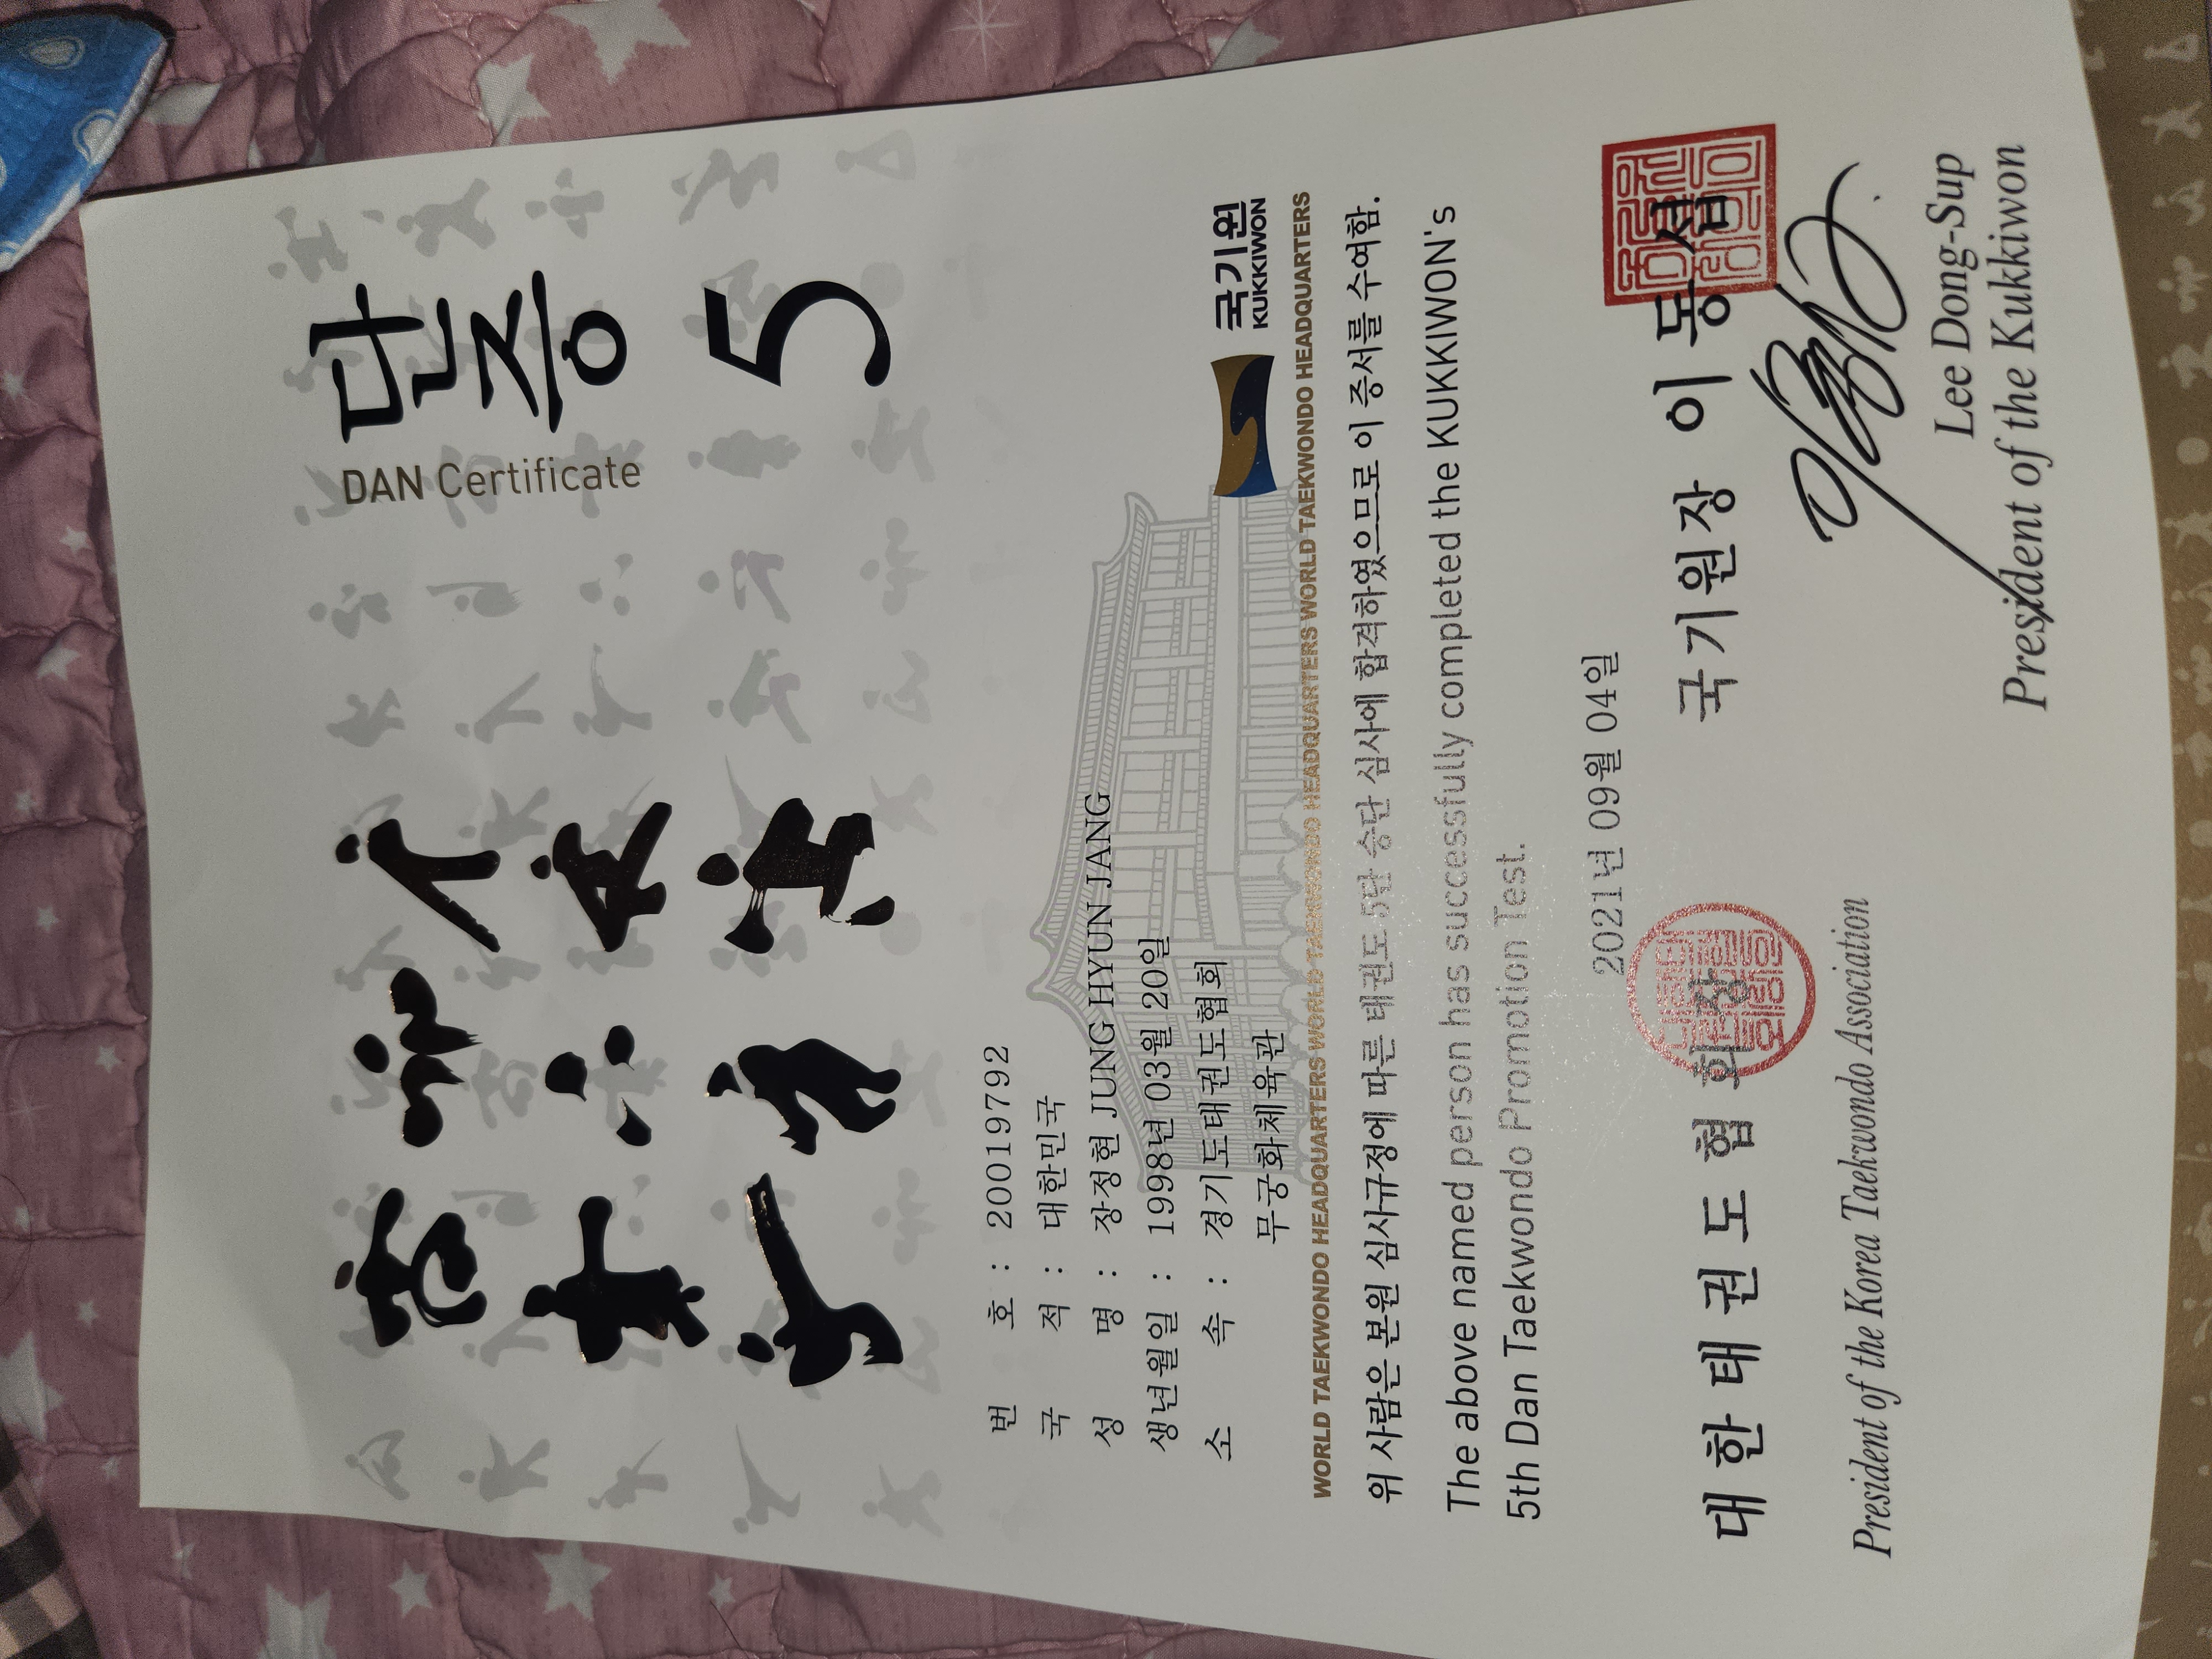 단증
DAN Certificate
5
번 호 : 20019792
국 적 : 대한민국
성 명 : 장정현 JUNG HYUN JANG
생년월일 : 1998년 03월 20일
소 속 : 경기도태권도협회
무궁화체육관
국기원
KUKKIWON
WORLD TAEKWONDO HEADQUARTERS WORLD TAEKWONDO HEADQUARTERS WORLD TAEKWONDO HEADQUARTERS WORLD TAEKWONDO HEADQUARTERS WORLD TAEKWONDO HEADQUARTERS
위 사람은 본원 심사규정에 따른 태권도 5단 승단 심사에 합격하였으므로 이 증서를 수여함.
The above named person has successfully completed the KUKKIWON's
5th Dan Taekwondo Promotion Test.
2021년 09월 04일
대한태권도협회장
President of the Korea Taekwondo Association
국기원장 이동섭
Lee Dong-Sup
President of the Kukkiwon